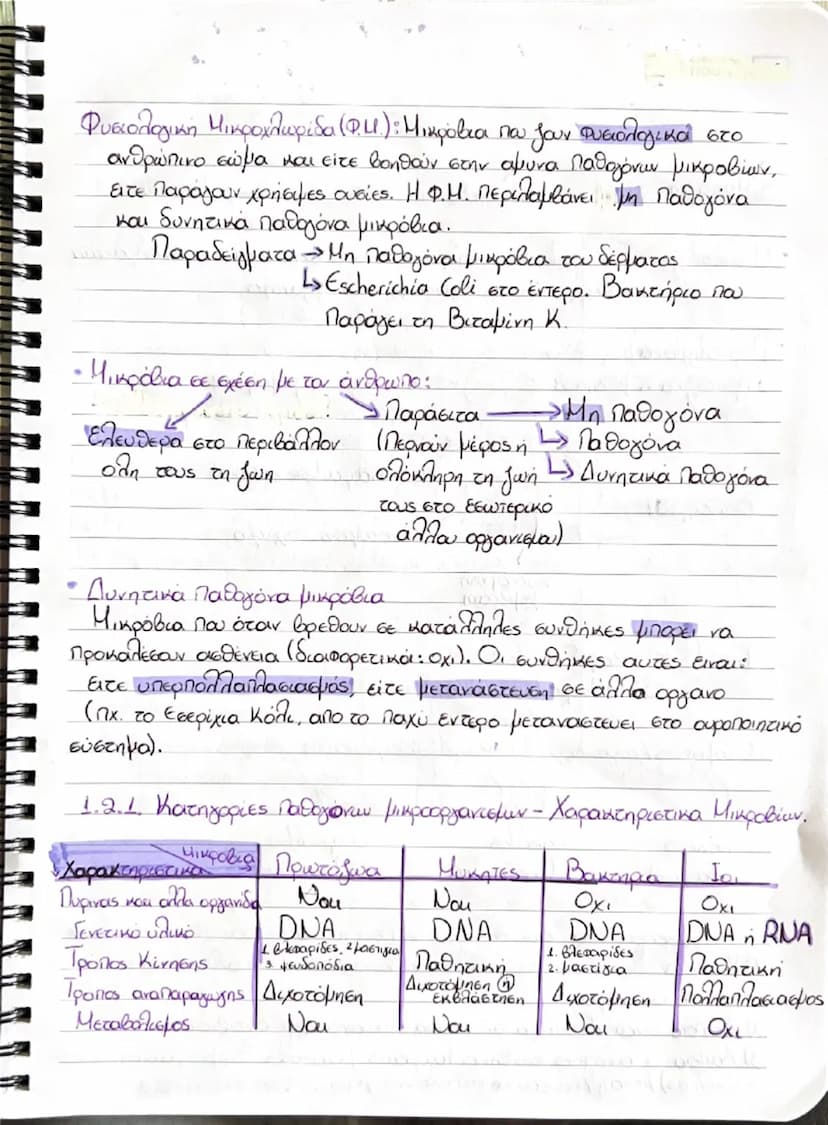 Φυσιολογική Μικροχλωρίδα (Φ.Μ.): Μικρόβια που ζουν φυσιολογικά στο
ανθρώπινο σώμα και είτε βοηθούν στην αμυνα παθογόνων μικροβίων,
ειτε παράγουν χρήσιμες ουσίες. Η Φ.Μ. περιλαμβάνει μη παθογόνα
και δυνητικά παθογόνα μικρόβια.
Παραδείγματα → Μη παθογόνα μικρόβια του δέρματος
↳ Escherichia Coli στο έντερο. Βακτήριο που
παράγει τη Βιταμίνη Κ.
• Μικρόβια σε σχέση με τον άνθρωπο:
Παράσιτα → Μη παθογόνα
Ελευθερα στο περιβάλλον (Περνούν μέρος ή ↳ Παθογόνα
ολη τους τη ζωη ολόκληρη τη ζωή ↳ Δυνητικά παθογόνα
τους στο εσωτερικό
άλλου οργανισμου)
• Δυνητικά παθογόνα μικρόβια
Μικρόβια που όταν βρεθουν σε κατάλληλες συνθήκες μπορεί να
προκαλέσουν ασθένεια (διαφορετικά: οχι). Οι συνθήκες αυτες ειναι:
ειτε υπερπολλαπλασιασμός, είτε μετανάστευση σε άλλο οργανο
(πχ. το Εσερίχια Κόλι, απο το παχύ εντερο μεταναστευει στο ουροποιητικό
σύστημα).
1.2.1. Κατηγορίες παθογόνων μικροοργανισμων - Χαρακτηριστικα Μικροβίων.
Μικροβια
Χαρακτηριστικα Πρωτόζωα Μυκητες Βακτηρια Ιοι
Πυρηνας και αλλα οργανιδια Ναι Ναι Οχι Οχι
Γενετικό υλικό DNA DNA DNA DNA ή RNA
Τρόπος Κίνησης 1. βλεφαρίδες, 2 μαστιγια 3. ψευδοπόδια Παθητική 1. βλεφαρίδες 2. μαστίγια Παθητική
Τροπος αναπαραγωγης Διχοτόμηση Διχοτόμηση ή εκβλάστηση Διχοτόμηση Πολλαπλασιασμος
Μεταβολισμος Ναι Ναι Ναι Οχι